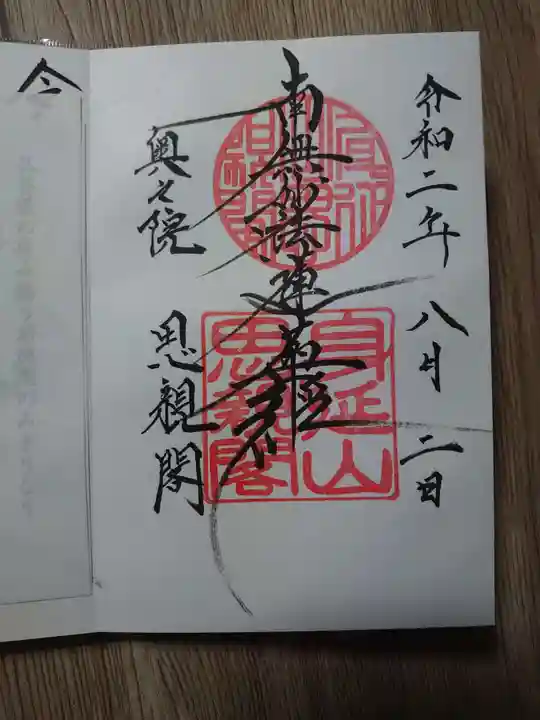 令和二年 八月 二日
南無妙法蓮華経
奥之院 思親閣
身延山
思親閣